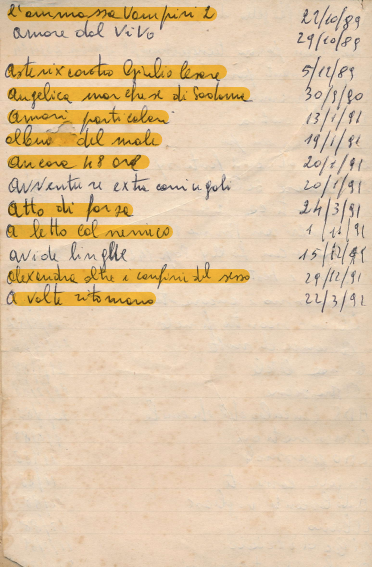 L'ammazza Vampiri 2 22/10/89
Amore dal vivo 29/10/89
Asterix contro Giulio Cesare 5/12/89
Angelica marchese di Sodoma 30/9/90
Amori particolari 13/1/91
Albero del male 19/1/91
Ancora 48 ore 20/1/91
Avventure extraconiugali 20/1/91
Atto di forza 24/3/91
A letto col nemico 1/11/91
avide linghe 15/12/91
Alexandra oltre i confini del sesso 29/12/91
A volte ritornano 22/3/92